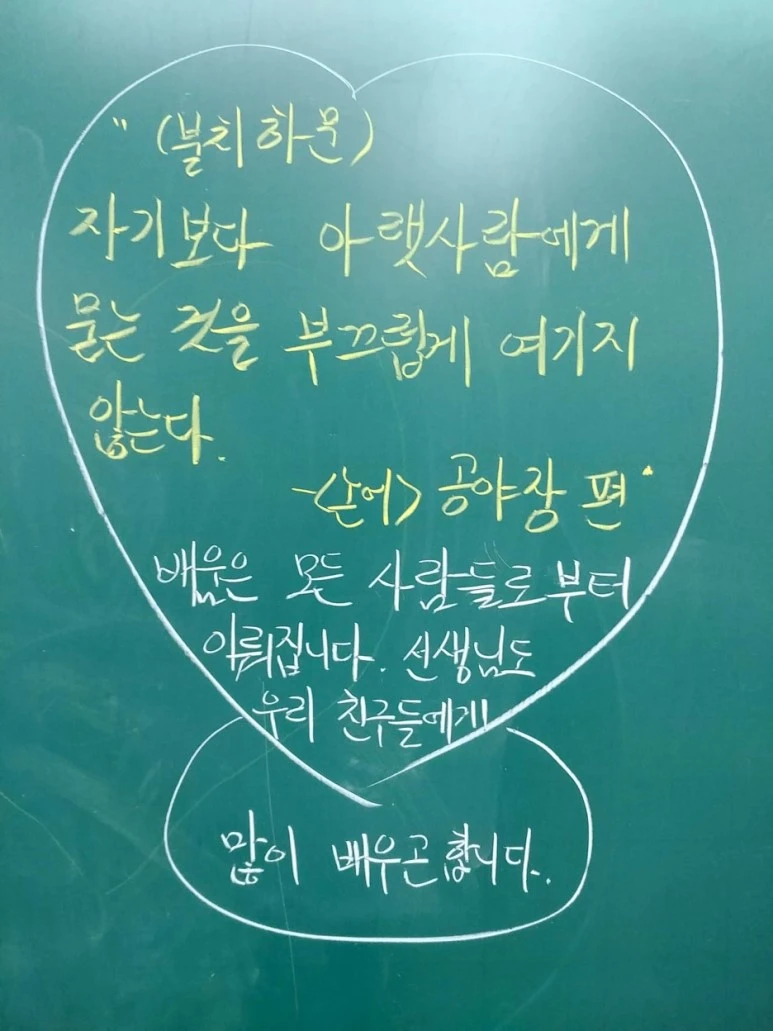 " (불치하문)
자기보다 아랫사람에게
묻는 것을 부끄럽게 여기지
않는다.
-<논어> 공야장 편"
배움은 모든 사람들로부터
이뤄집니다. 선생님도
우리 친구들에게
많이 배우곤 합니다.